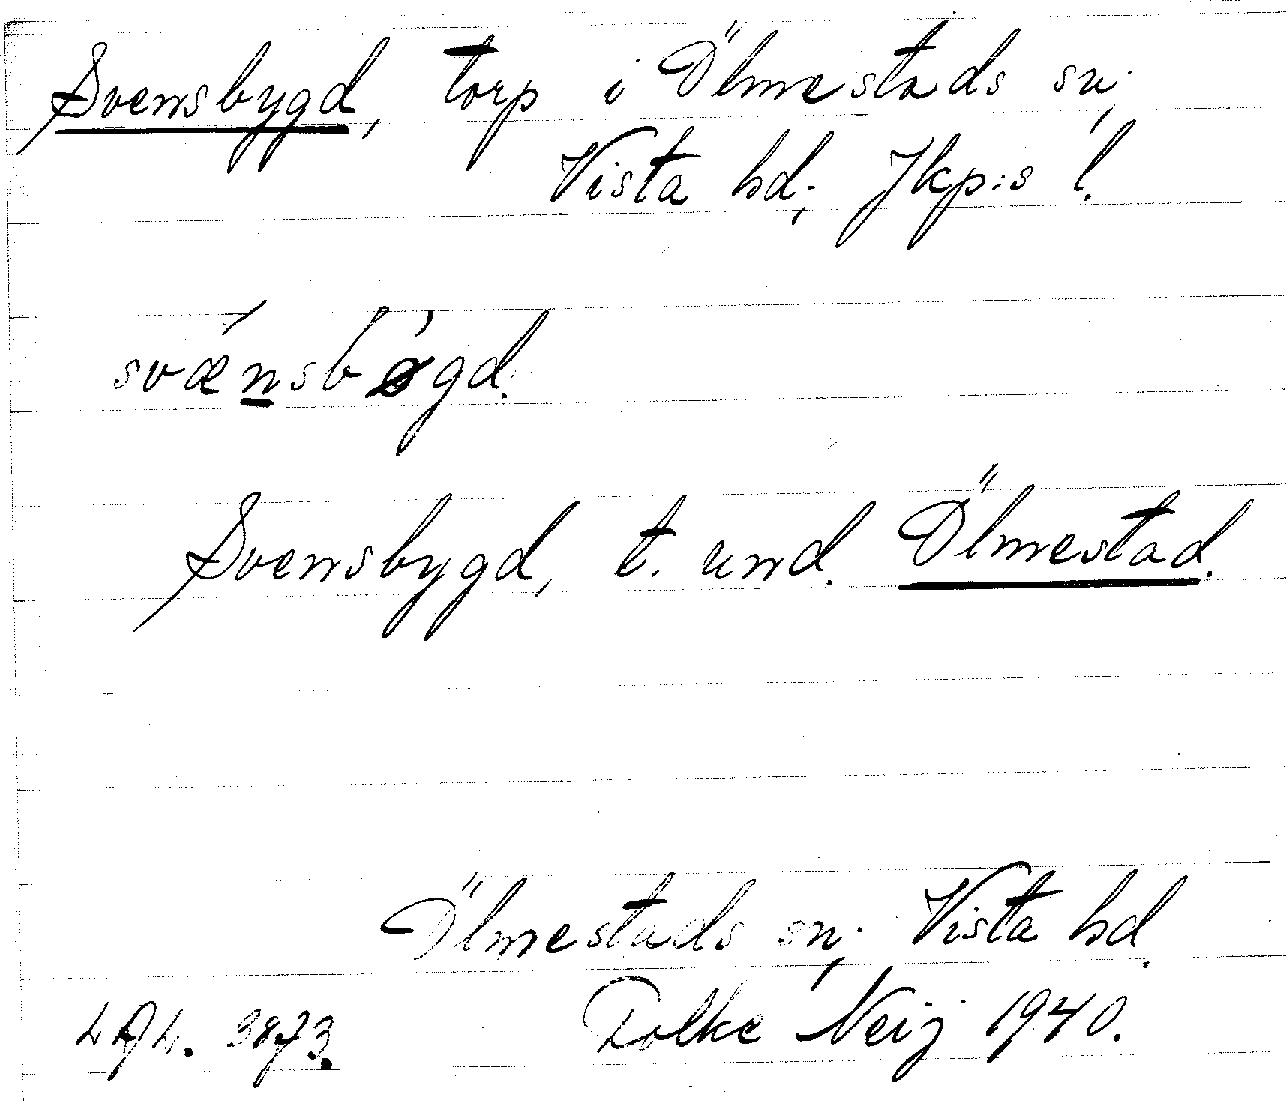 Svensbygd, torp i Ölmestads sn;
Vista hd; Jkp:s l.
svænsbøgd.
Svensbygd, t. und. Ölmestad.
Ölmestads sn; Vista hd.
LAL. 3873. Folke Neij 1940.